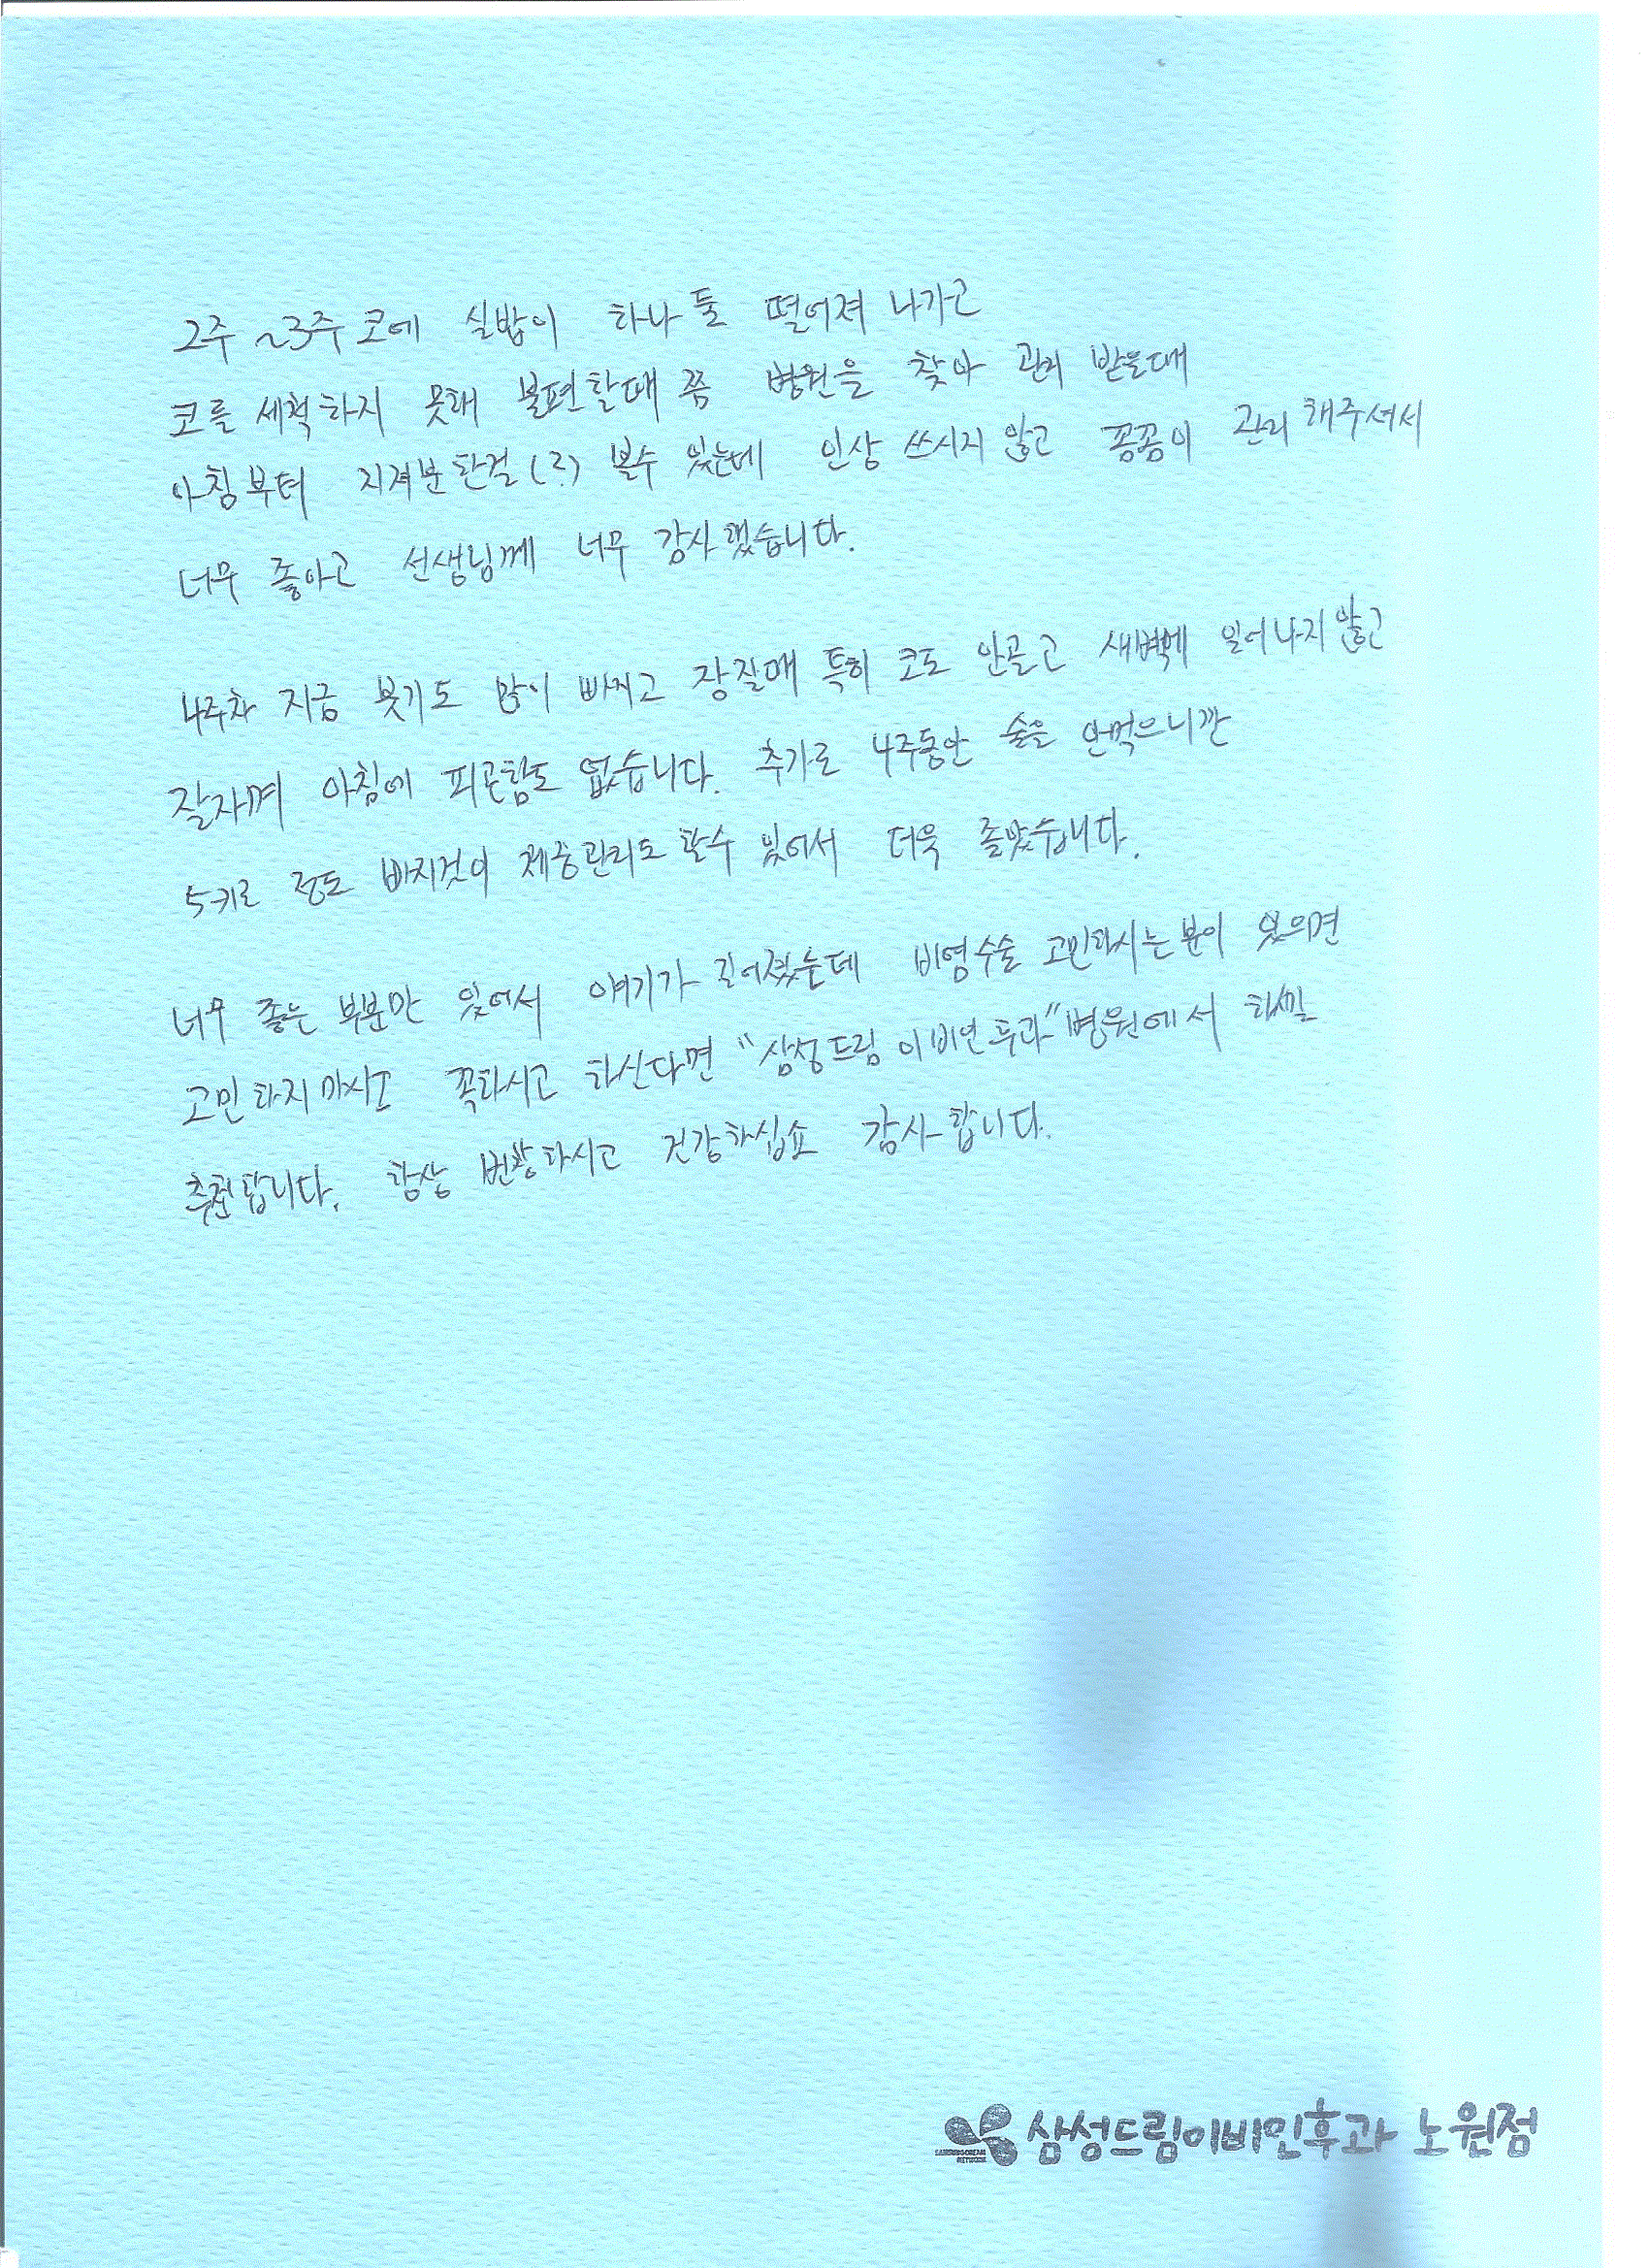 2주 ~3주 코에 실밥이 하나 둘 떨어져 나가고
코를 세척하지 못해 불편할때 쯤 병원을 찾아 관리 받을때
아침부터 지져분한걸(?) 볼수 있는데 인상 쓰시지 않고 꼼꼼이 관리해주셔서
너무 좋아고 선생님께 너무 감사했습니다.
4주차 지금 붓기도 많이 빠지고 잠잘때 특히 코도 안골고 새벽에 일어나지않고
잘자며 아침에 피곤함도 없습니다. 추가로 4주동안 술을 안먹으니깐
5키로 정도 빠지것이 체중관리도 할수 있어서 더욱 좋았습니다.
너무 좋은 부분만 있어서 얘기가 길어졌는데 비염수술 고민하시는분이 있으면
고민하지마시고 꼭하시고 하신다면 "삼성드림이비인후과"병원에서 하실
추천합니다. 항상 번창하시고 건강하십쇼 감사합니다.
삼성드림이비인후과 노원점